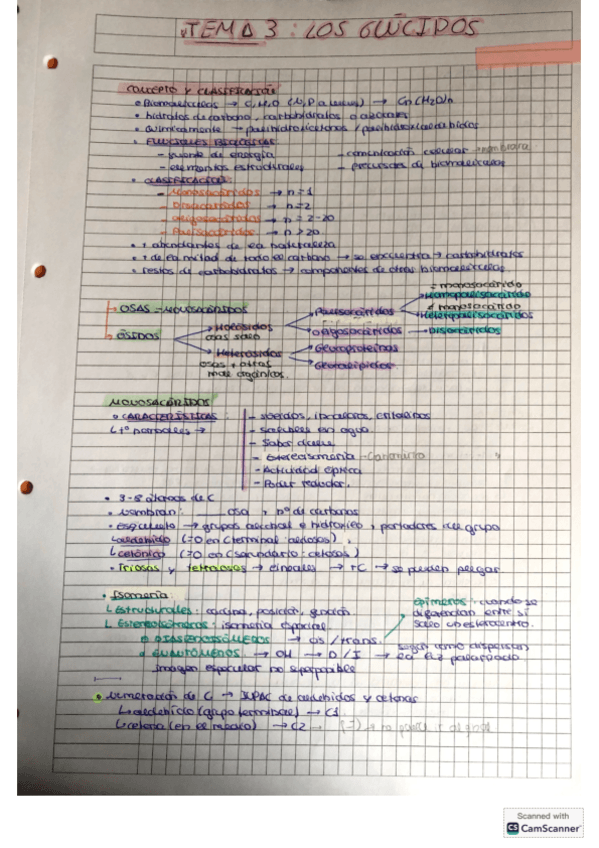 TEMA 3: LOS GLÚCIDOS
CONCEPTO Y CLASIFICACIÓN
Biomoléculas → C, H, O (N, P a veces) → Cn(H2O)n
hidratos de carbono, carbohidratos o azúcares
Químicamente → polihidroxicetonas / polihidroxialdehídos
FUNCIONES BIOLÓGICAS:
- fuente de energía - comunicación celular → membrana
- elementos estructurales - precursores de biomoléculas
CLASIFICACIÓN:
- Monosacáridos → n = 1
- Disacáridos → n = 2
- Oligosacáridos → n = 2-20
- Polisacáridos → n > 20
+ abundantes de la naturaleza
+ de la mitad de todo el carbono → se encuentra → carbohidratos
restos de carbohidratos → componentes de otras biomoléculas.
= monosacárido
OSAS - MONOSACÁRIDOS Polisacáridos Homopolisacárido
≠ monosacárido
Heteropolisacáridos
ÓSIDOS Holósidos Oligosacáridos → Disacáridos
osas solo
Heterósidos Glucoproteínas
osas + otras Glucolípidos
mol. orgánicas.
MONOSACÁRIDOS
CARACTERÍSTICAS: - sólidos, incoloros, cristalinos
tº normales → - solubles en agua.
- Sabor dulce
- Estereoisomería
- Actividad óptica
- Poder reductor.
3-8 átomos de C
nombran: ___ osa, nº de carbonos
esqueleto → grupos alcohol e hidroxilo, portadores del grupo
aldehído (=O en C terminal: aldosas),
cetónico (=O en C secundario: cetosas)
Triosas y tetrosas → lineales → +C → se pueden plegar
Isomería: epímeros: cuando se
Estructurales: cadena, posición, función. diferencian entre sí
Estereoisómeros: isomería espacial. solo un estereocentro.
DIASTEREOISÓMEROS → cis / trans.
ENANTIÓMEROS → OH → D / l → según como dispersan
la luz polarizada
imagen especular no superponible
numeración de C → IUPAC de aldehídos y cetonas
aldehído (grupo terminal) → C1
cetona (en el medio) → C2
Scanned with
CS CamScanner